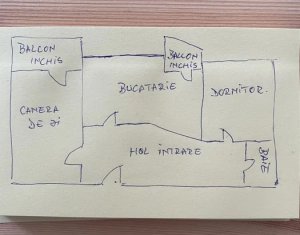 BALCON
INCHIS
BALCON
INCHIS
BUCATARIE
DORMITOR.
CAMERA
DE ZI
HOL INTRARE
BAIE